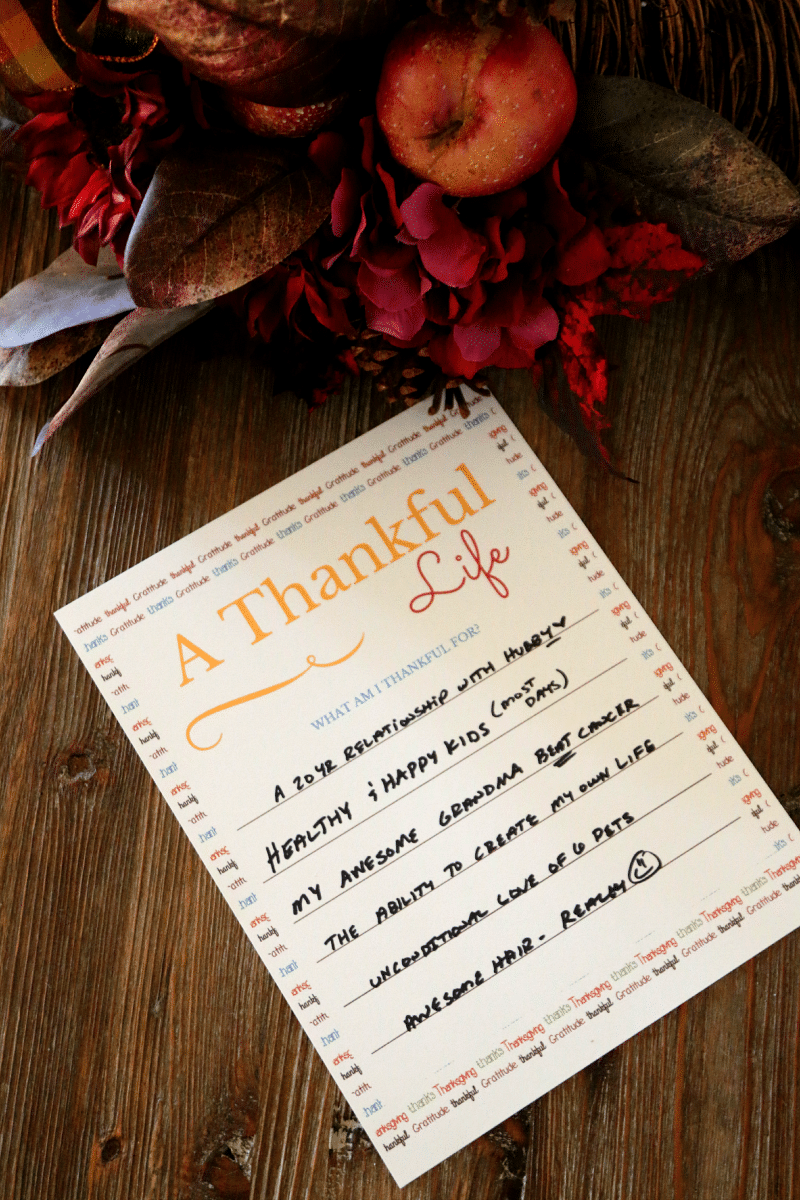 Gratitude thankful Gratitude thankful Gratitude thankful Gratitude thankful Gratitude thankful Gratitude
Gratitude thanks Gratitude thanks Gratitude thanks Gratitude thanks Gratitude thanks
A Thankful
Life
WHAT AM I THANKFUL FOR?
A 20 YR RELATIONSHIP WITH HUBBY ♥
HEALTHY & HAPPY KIDS (MOST DAYS)
MY AWESOME GRANDMA BEAT CANCER
THE ABILITY TO CREATE MY OWN LIFE
UNCONDITIONAL LOVE OF 6 PETS
AWESOME HAIR - REALLY
thanks Thanksgiving thanks Thanksgiving thanks Thanksgiving thanks Thanksgiving thanks Thanksgiving
thankful Gratitude thankful Gratitude thankful Gratitude thankful Gratitude thankful Gratitude